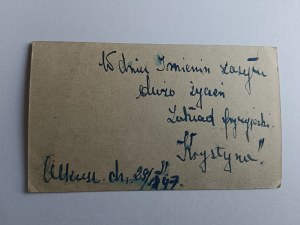 W dniu Imienin zasyła
dużo życzeń
Zakład fryzjerski
"Krystyna"
Olkusz, dn. 29/ 47.